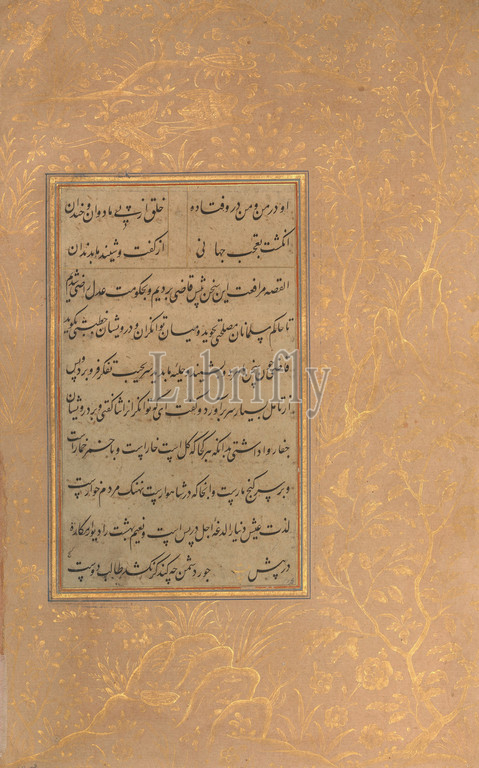 او در من و من درو فتاده خلق از پی ما دوان و خندان
انگشت تعجب جهانی از گفت و شنید ما بدندان
القصه مرافعت این سخن پیش قاضی بردیم و بحکومت عدل راضی شدیم
تا حاکم مسلمانان مصلحتی بجوید و میان توانگران و درویشان بگوید
قاضی بشنید و حلیه ما بدید سر بجیب تفکر فرو برد و پس
از تامل بسیار سر برآورد و گفت ای که توانگران را ثنا گفتی و بر درویشان
جفا روا داشتی بدانکه هر کجا که گل است خار است و با خمر خمار است
و بر سر گنج مار است و آنجا که در شاهوار است نهنگ مردم خوار است
لذت عیش دنیا را لدغه اجل در پس است و نعیم بهشت را دیوار مکاره
در پیش جور دشمن چه کند گر نکشد طالب دوست
Librifly